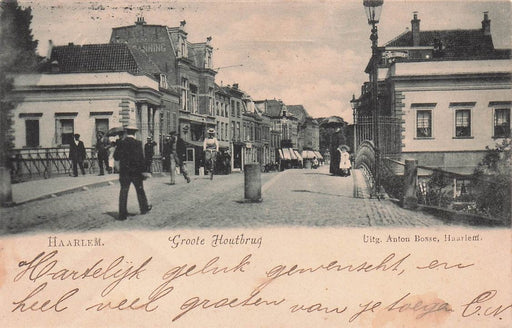 HAARLEM. Groote Houtbrug Uitg. Anton Bosse, Haarlem.
Hartelijk geluk gewenscht, en
heel veel groeten van je toegn. C.N.